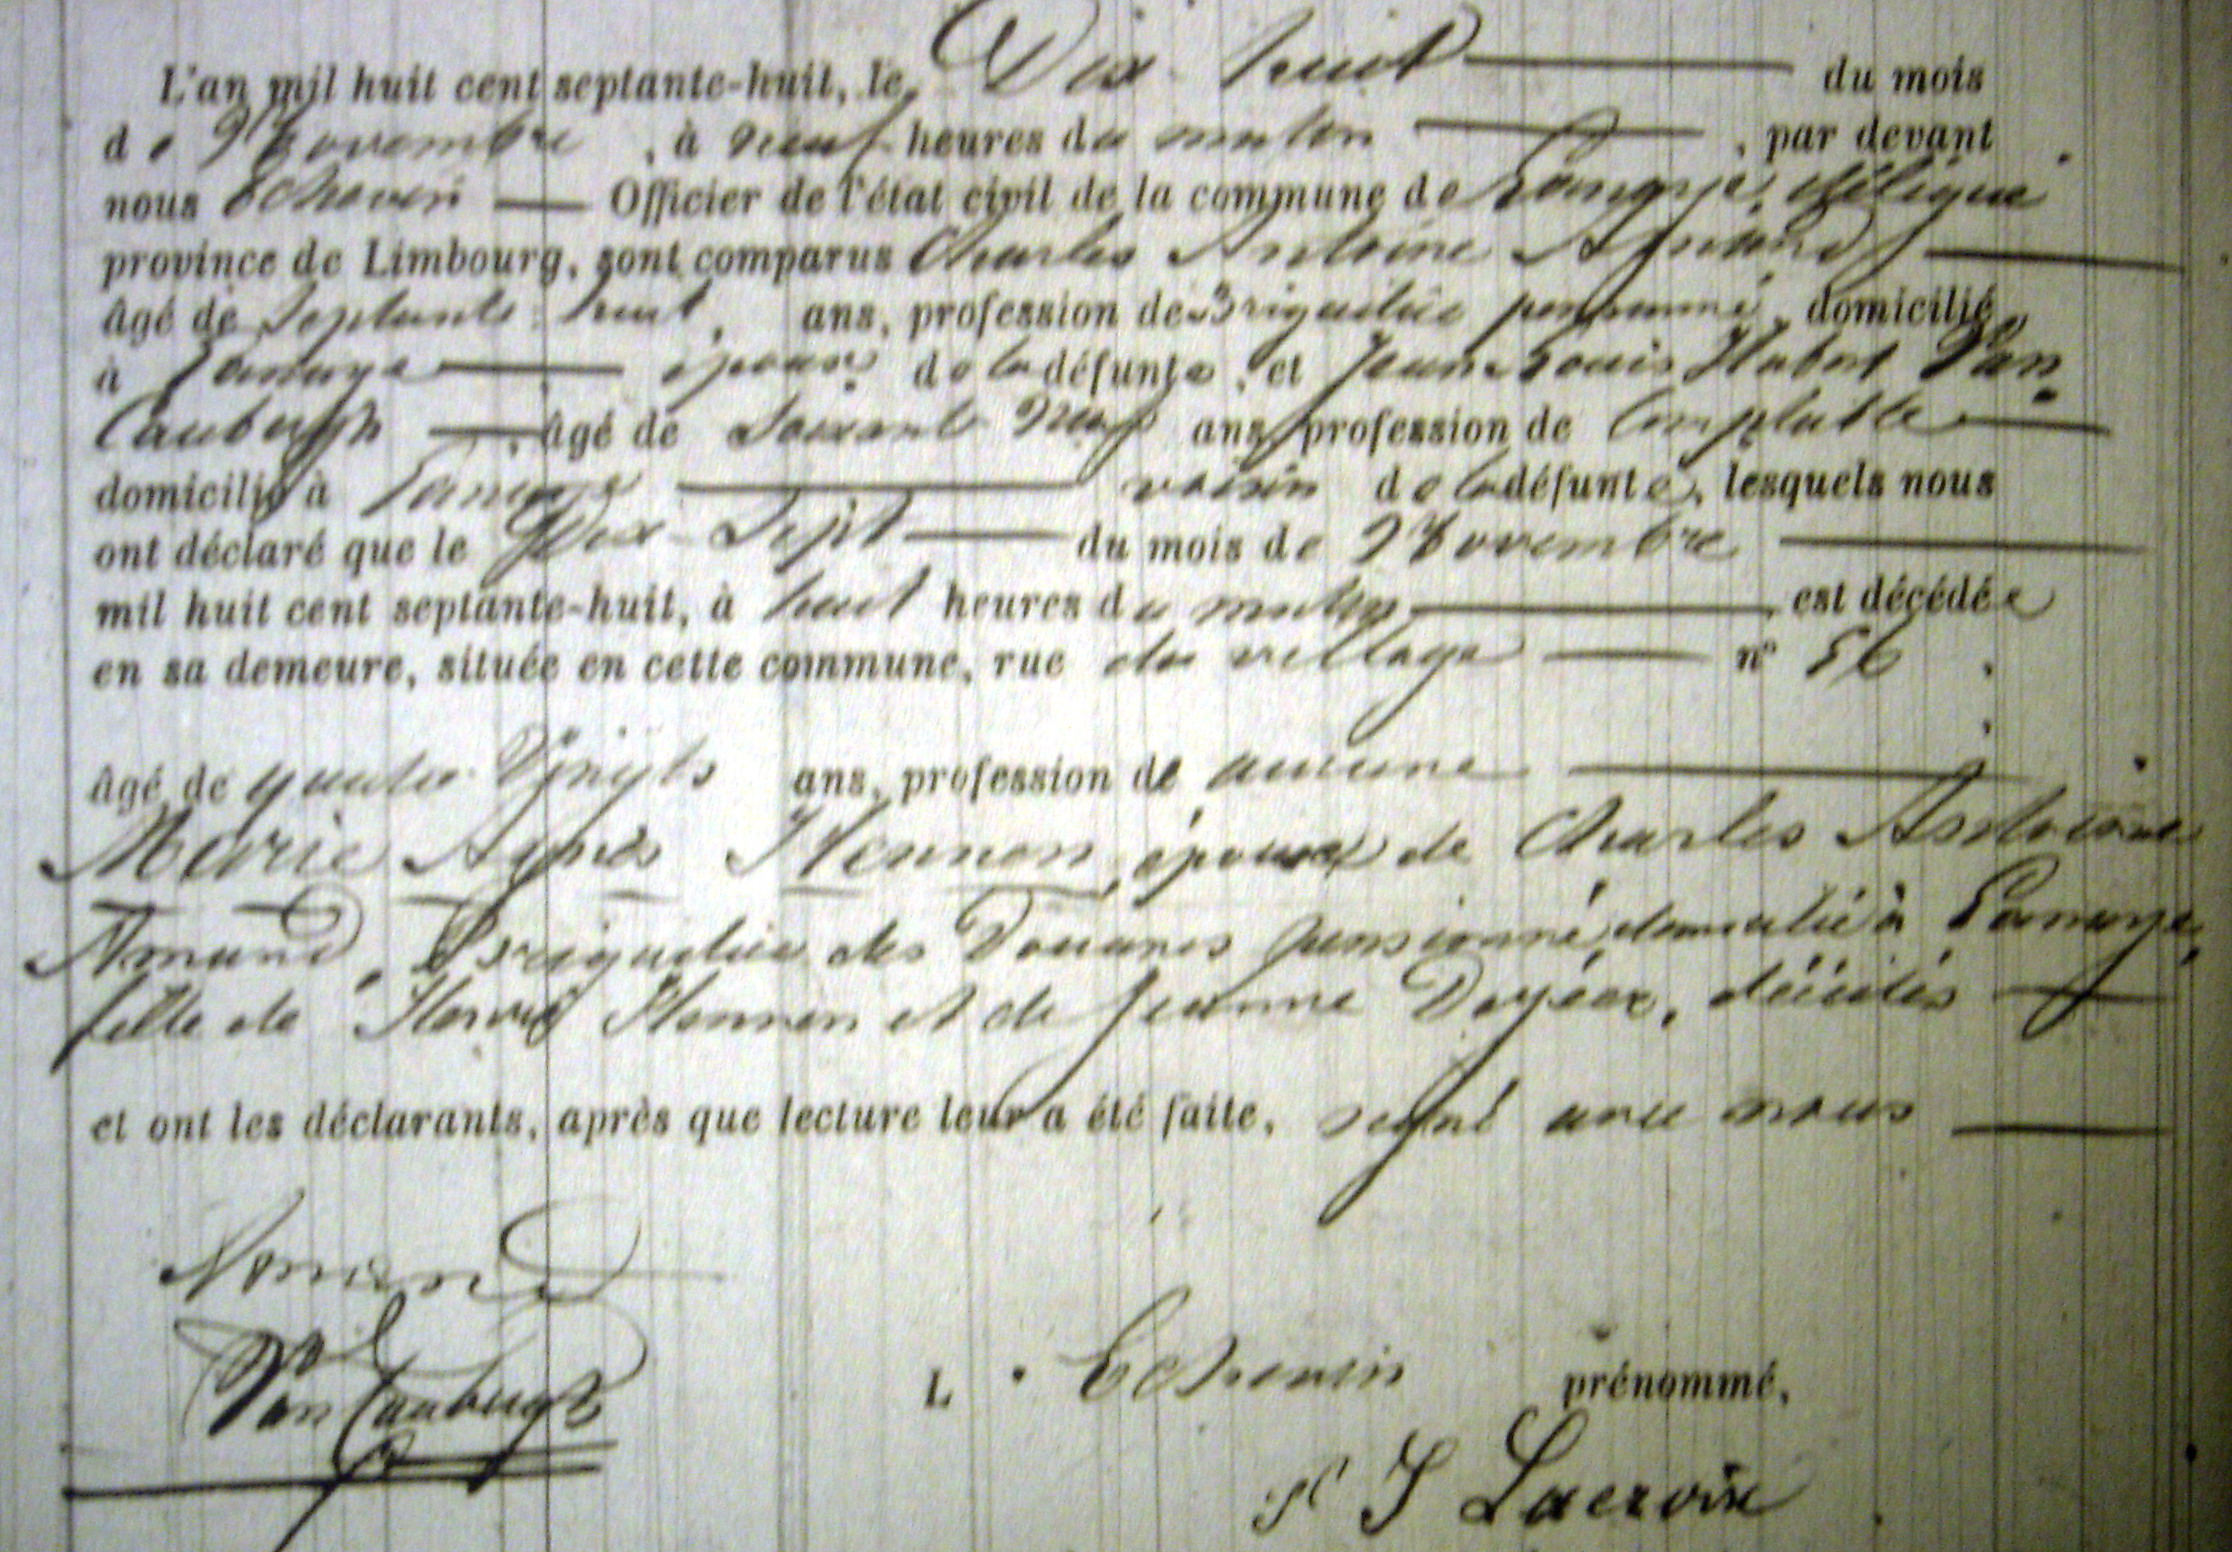 L'an mil huit cent septante-huit, le Dix huit du mois
de Novembre, à neuf heures du matin, par devant
nous Echevin Officier de l'état civil de la commune de Lanaye, délégué
province de Limbourg, sont comparus Charles Antoine Amand
âgé de Septante huit, ans, profession de Brigadier pensionné domicilié
à Lanaye époux de la défunte, et Jean Louis Hubert Van
Caubergh, âgé de Soixante Neuf ans, profession de Comptable
domicilié à Lanaye voisin de la défunte, lesquels nous
ont déclaré que le Dix-Sept du mois de Novembre
mil huit cent septante-huit, à huit heures du matin est décédée
en sa demeure, située en cette commune, rue du village n° 56
âgé de quatre Vingts ans, profession de aucune
Marie Agnès Hennon, épouse de Charles Antoine
Amand, Brigadier des Douanes pensionné, domicilié à Lanaye,
fille de Hennon et de Jeanne décédés
et ont les déclarants, après que lecture leur a été faite, signé avec nous
Amand
Van Caubergh
L. Echevin prénommé,
J Lacroix